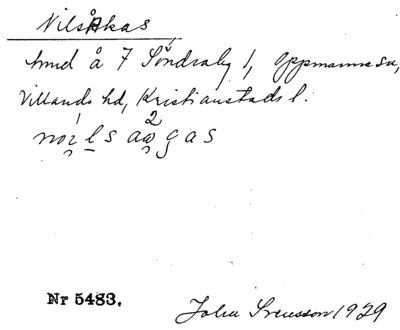 Nilsåkas
hmd å 7 Söndraby 1, Oppmanna sn,
Villands hd, Kristianstads l.
Nr 5483.
John Svensson 1929